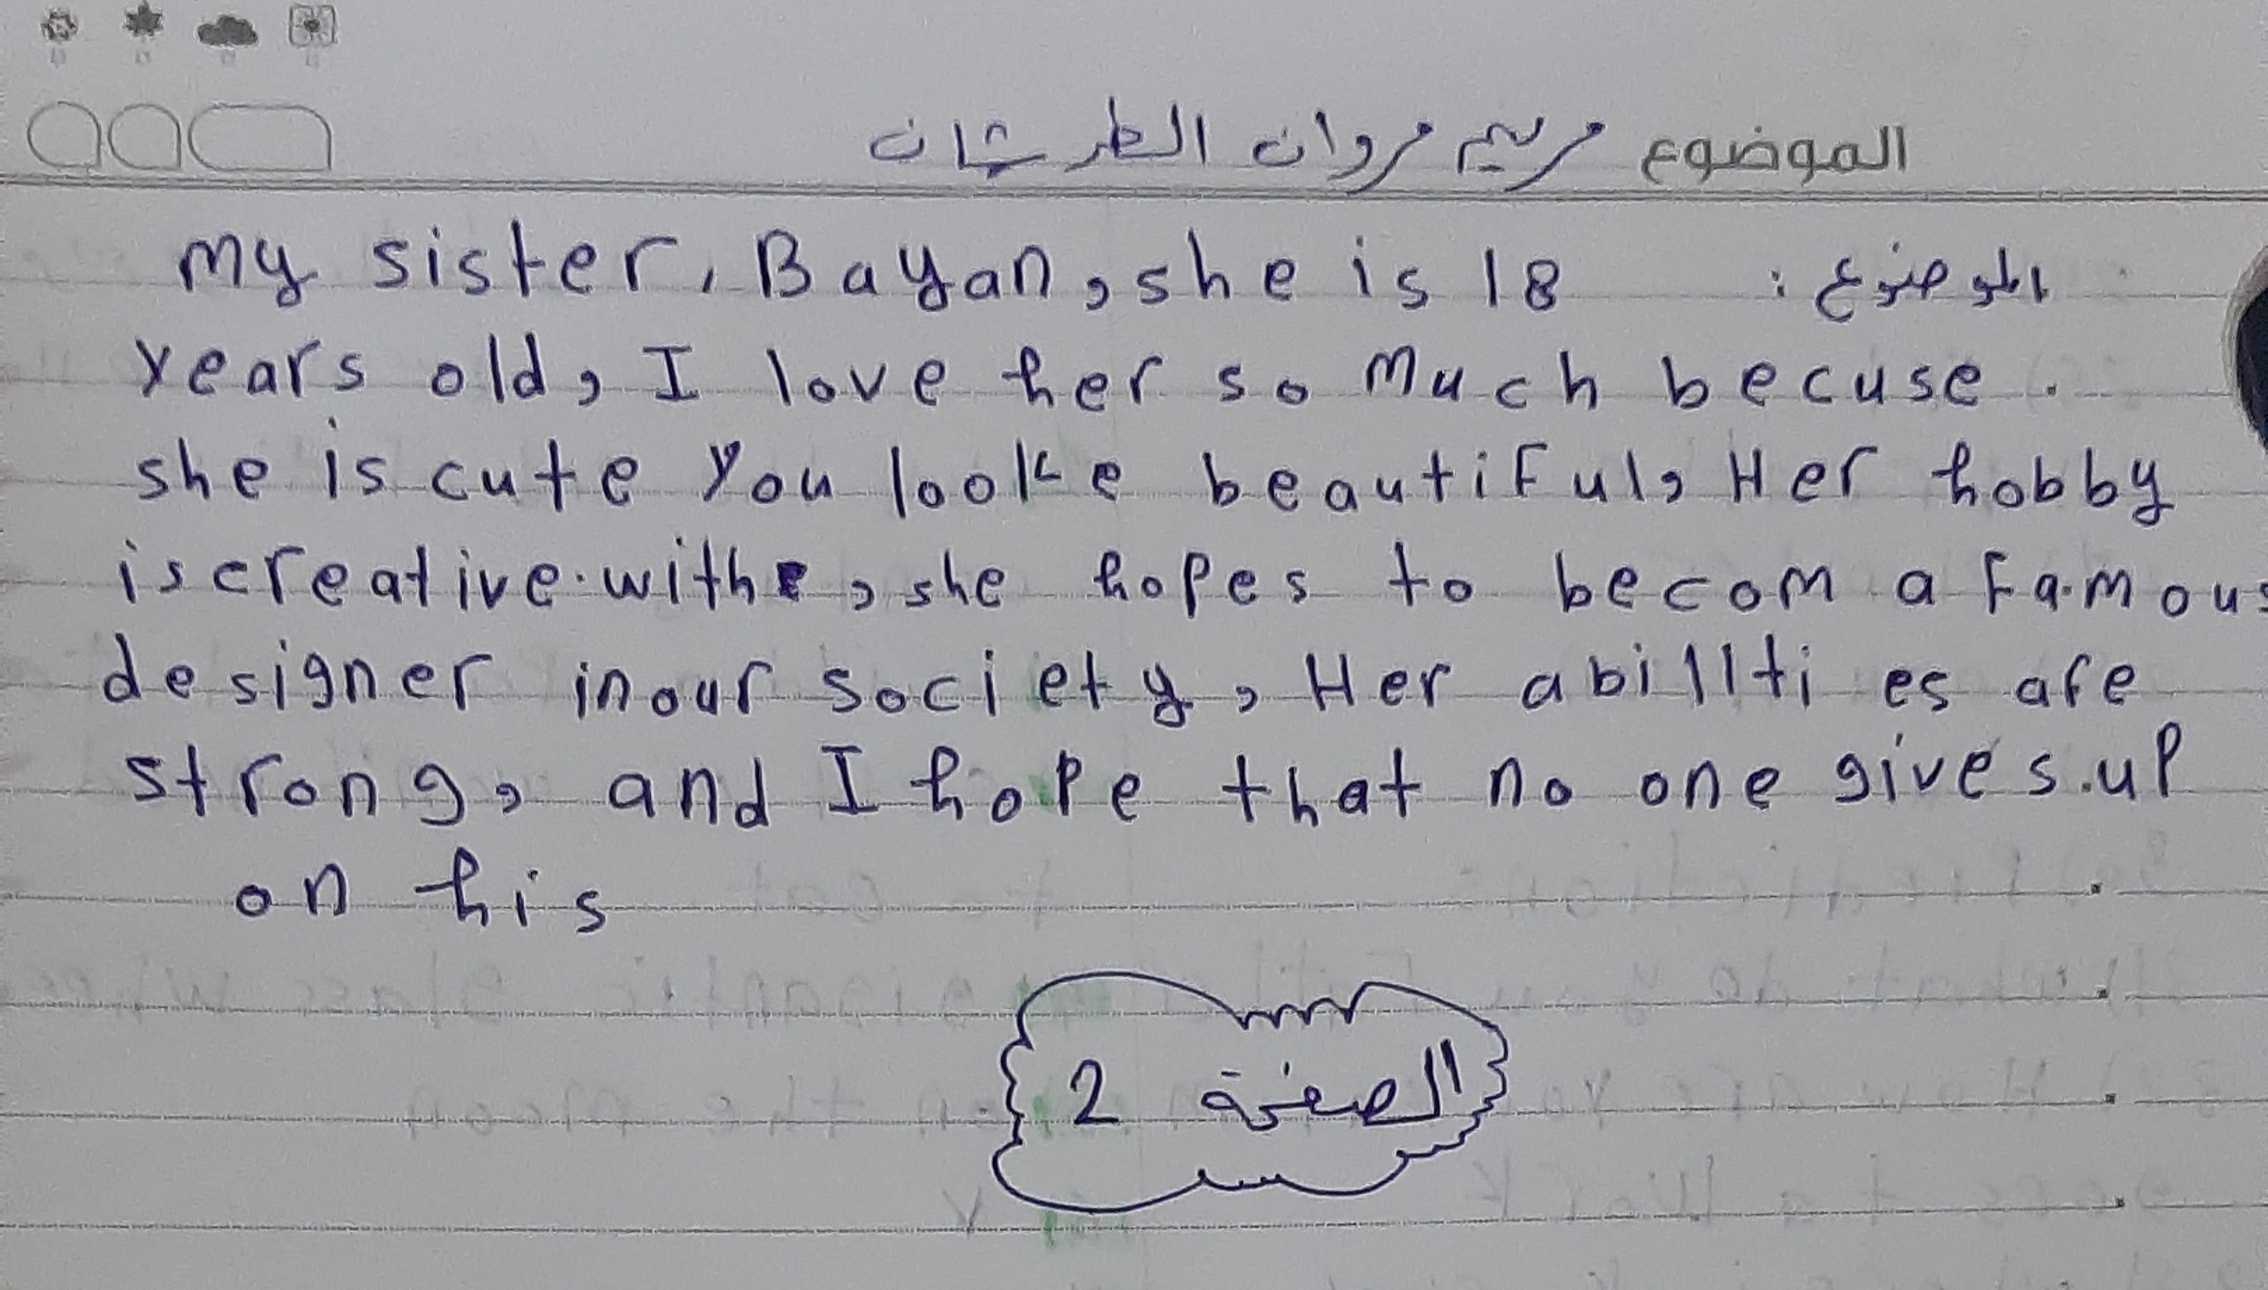 الموضوع مريم مروان الطرشان
الموضوع :
my sister, Bayan, she is 18
years old, I love her so much becuse.
she is cute you looke beautiful, Her hobby
is creative withe, she hopes to becom a famous
designer in our society, Her abillties are
strong, and I hope that no one gives up
on his
الصفحة 2